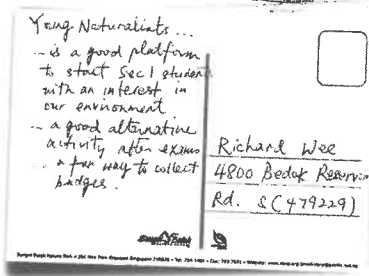 Young Naturalists...
... is a good platform
to start Sec 1 students
with an interest in
our environment
... a good alternative
activity after exams
... a fun way to collect
badges.
Richard Wee
4800 Bedok Reservoir
Rd. S(479229)